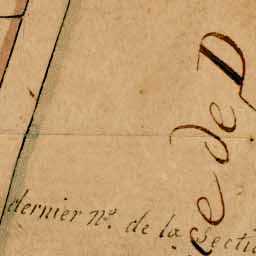 dernier n.º de la Secti
ce de D